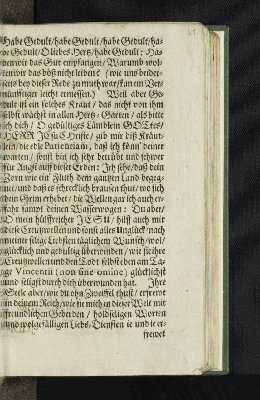 Habe Gedult/habe Gedult/habe Gedult/ha-
be Gedult/O liebes Hertz/habe Gedult; Ha-
ben wir das Gut empfangen/Warumb wol-
ten wir das böß nicht leiden? (wie uns beider-
seits bey dieser Rede zu muth war/kan ein Ver-
nünfftiger leicht ermessen.) Weil aber Ge-
dult ist ein solches Kraut/das nicht von ihm
selbst wächst in allen Hertz-Gärten/als bitte
ich dich/O gedültiges Lämblein GOttes/
HErr JEsu Christe/gib mir diß Kräut-
lein/die edle Patientiam, daß ich kan deiner
warten/sonst bin ich sehr betrübt und schwer
für Angst auff dieser Erden: Ich sehe/daß dein
Zorn wie ein Fluth dem gantzen Land begeg-
net/und daß es schrecklich brausen thut/wo sich
dein Grim erhebet/die Wellen gar ich auch er-
fahr sampt deinen Wasserwogen: Du aber/
O mein hülffreicher JESU/hilff auch mir
diese Creutzwellen und sonst alles Unglück/nach
meiner selige Liebsten täglichem Wunsch/wol/
glücklich und gedultig überwinden/wie sie ihre
Creutzwellen und den Todt selbst eben am Ta-
ge Vincentii (non sine omine) glücklichst
und seligst durch dich überwunden hat. Ihre
Seele aber/wie du ohn Zweiffel thust/erfrewe
in deinem Reich/wie sie mich in dieser Welt mit
freundlichen Geberden/holdseligen Worten
und wolgefälligen Liebs-Diensten ie und ie er-
frewet